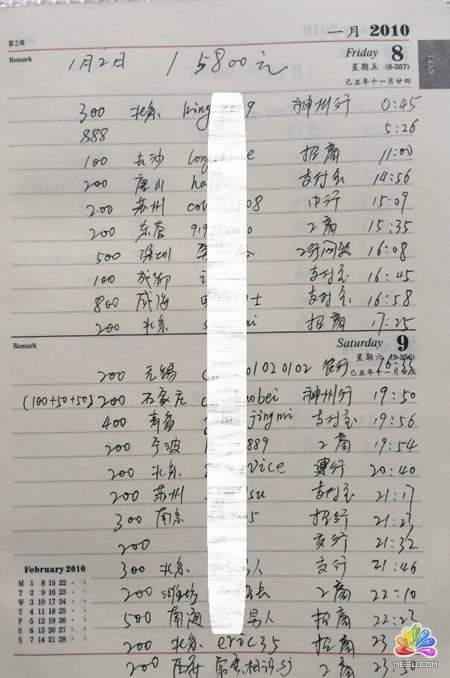 第2周
一月 2010
Remark
Friday 8
星期五 (8-357)
己丑年十一月廿四
1月2日 15800元
300 北京 king 9 神州行 0:45
888 5:26
100 长沙 long e 招商 11:00
200 唐山 ha 支付宝 14:56
200 苏州 co 08 中行 15:09
200 东莞 919 工商 15:35
500 深圳 16:08
100 成都 支付宝 16:45
800 威海 士 支付宝 16:58
200 北京 s mi 招商 17:25
Remark
Saturday 9
星期六 (9-356)
200 无锡 c 0102 0102 农行
(100+50+50) 200 石家庄 obei 神州行 19:50
400 青岛 jingmi 支付宝 19:56
200 宁波 889 工商 19:54
200 北京 vice 20:40
200 苏州 su 支付宝 21:17
300 南京 5 招行 21:23
200 交行 21:32
300 北京 人 21:46
200 潍坊 工商 22:10
500 南海 男人 招商 22:23
200 北京 eric35 招商 23
200 工商 23
February 2010
M 1 8 15 22
T 2 9 16 23
W 3 10 17 24
T 4 11 18 25
F 5 12 19 26
S 6 13 20 27
S 7 14 21 28
MESU.COM